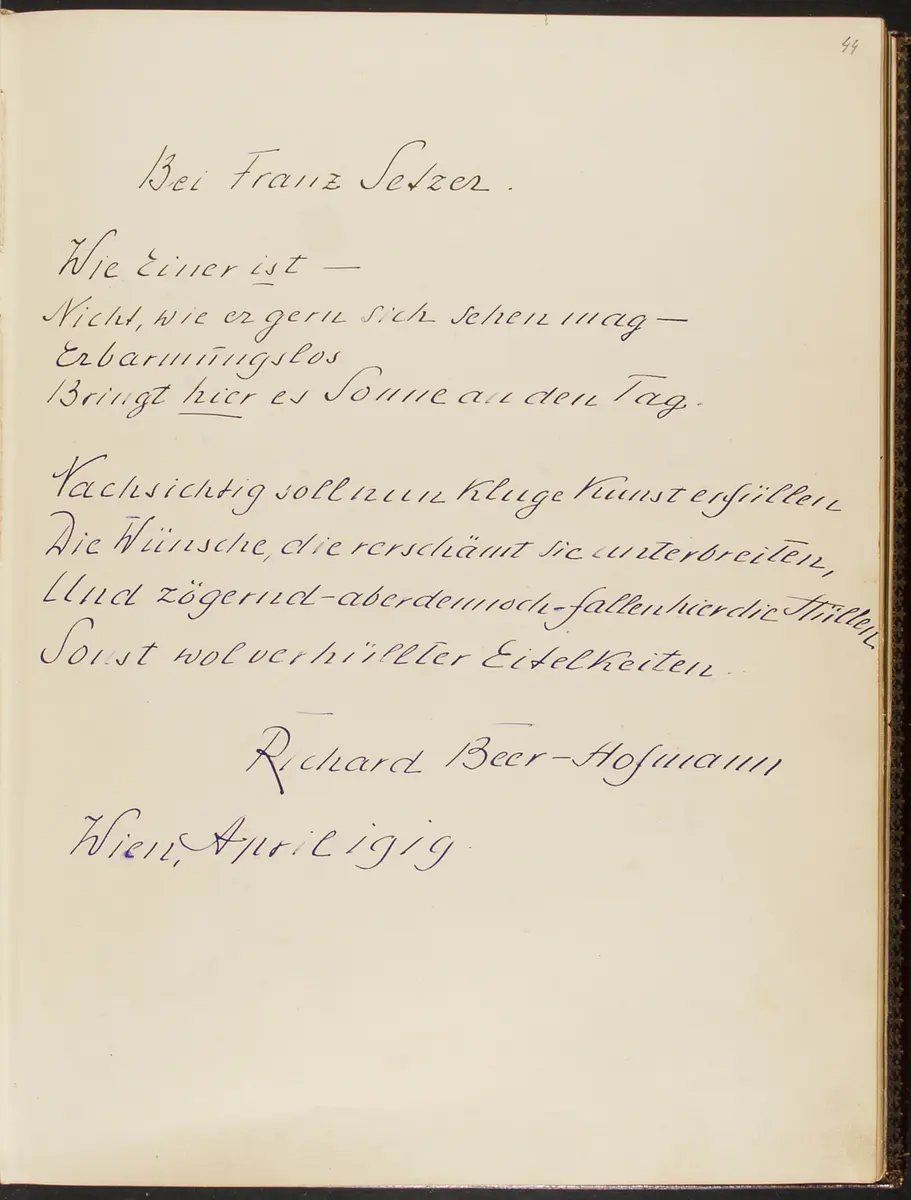 44
Bei Franz Setzer.
Wie Einer ist —
Nicht, wie er gern sich sehen mag —
Erbarmungslos
Bringt hier es Sonne an den Tag.
Nachsichtig soll nun kluge Kunst erfüllen
Die Wünsche, die verschämt sie unterbreiten,
Und zögernd – aber dennoch – fallen hier die Hüllen
Sonst wolverhüllter Eitelkeiten.
Richard Beer-Hofmann
Wien, April 1919